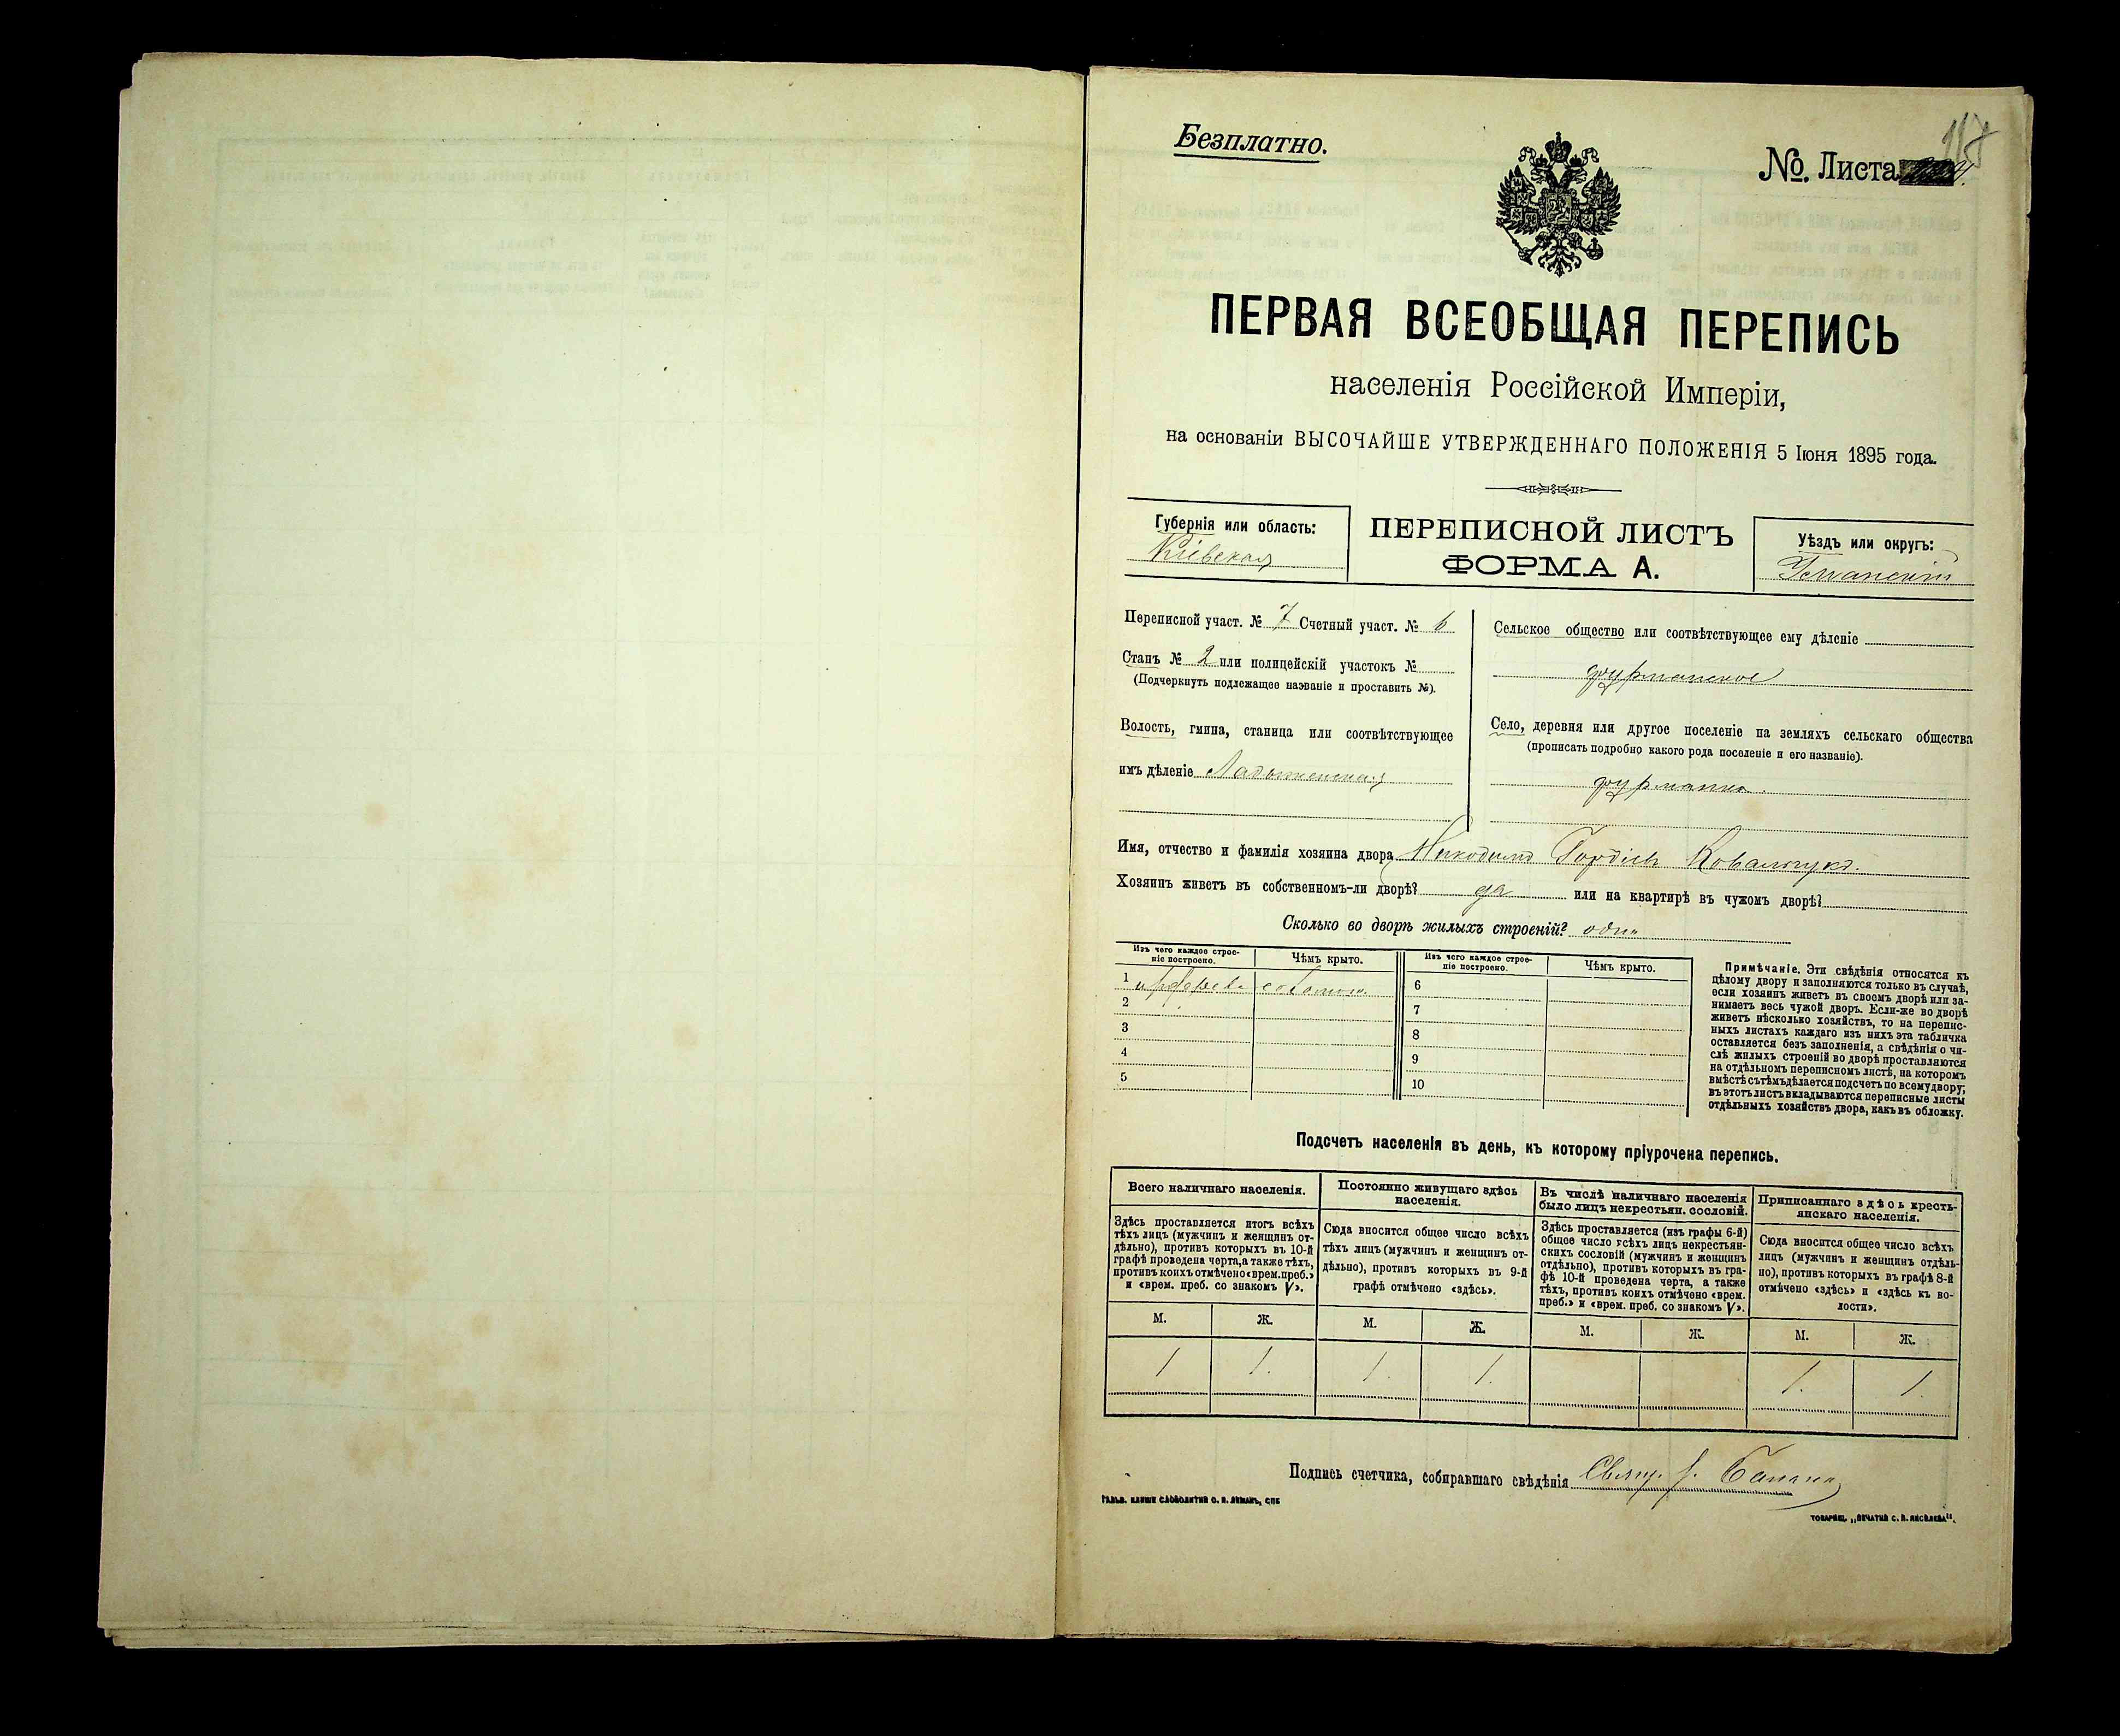 Безплатно.
117
№. Листа
ПЕРВАЯ ВСЕОБЩАЯ ПЕРЕПИСЬ
населенія Россійской Имперіи,
на основаніи ВЫСОЧАЙШЕ УТВЕРЖДЕННАГО ПОЛОЖЕНІЯ 5 Іюня 1895 года.
Губернія или область:
Кіевская
ПЕРЕПИСНОЙ ЛИСТЪ
ФОРМА А.
Уѣздъ или округъ:
Уманскій
Переписной участ. № 7 Счетный участ. № 6
Станъ № 2 или полицейскій участокъ №
(Подчеркнуть подлежащее названіе и проставить №).
Волость, гмина, станица или соотвѣтствующее
имъ дѣленіе Ладыженская
Сельское общество или соотвѣтствующее ему дѣленіе
фурманское
Село, деревня или другое поселеніе на земляхъ сельскаго общества
(прописать подробно какого рода поселеніе и его названіе).
фурманка.
Имя, отчество и фамилія хозяина двора Никодимъ Гордіевъ Ковальчукъ.
Хозяинъ живетъ въ собственномъ-ли дворѣ? да или на квартирѣ въ чужомъ дворѣ?
Сколько во дворѣ жилыхъ строеній? одно
Изъ чего каждое строе-
ніе построено.
Чѣмъ крыто.
Изъ чего каждое строе-
ніе построено.
Чѣмъ крыто.
1 соломою
6
2
7
3
8
4
9
5
10
Примѣчаніе. Эти свѣдѣнія относятся къ
цѣлому двору и заполняются только въ случаѣ,
если хозяинъ живетъ въ своемъ дворѣ или за-
нимаетъ весь чужой дворъ. Если-же во дворѣ
живетъ нѣсколько хозяйствъ, то на перепис-
ныхъ листахъ каждаго изъ нихъ эта табличка
оставляется безъ заполненія, а свѣдѣнія о чи-
слѣ жилыхъ строеній во дворѣ проставляются
на отдѣльномъ переписномъ листѣ, на которомъ
вмѣстѣ съ тѣмъ дѣлается подсчетъ по всему двору;
въ этотъ листъ вкладываются переписные листы
отдѣльныхъ хозяйствъ двора, какъ въ обложку.
Подсчетъ населенія въ день, къ которому пріурочена перепись.
Всего наличнаго населенія.
Здѣсь проставляется итогъ всѣхъ
тѣхъ лицъ (мужчинъ и женщинъ от-
дѣльно), противъ которыхъ въ 10-й
графѣ проведена черта, а также тѣхъ,
противъ коихъ отмѣчено «врем. преб.»
и «врем. преб. со знакомъ V».
Постоянно живущаго здѣсь
населенія.
Сюда вносится общее число всѣхъ
тѣхъ лицъ (мужчинъ и женщинъ от-
дѣльно), противъ которыхъ въ 9-й
графѣ отмѣчено «здѣсь».
Въ числѣ наличнаго населенія
было лицъ некрестьян. сословій.
Здѣсь проставляется (изъ графы 6-й)
общее число всѣхъ лицъ некрестьян-
скихъ сословій (мужчинъ и женщинъ
отдѣльно), противъ которыхъ въ гра-
фѣ 10-й проведена черта, а также
тѣхъ, противъ коихъ отмѣчено «врем.
преб.» и «врем. преб. со знакомъ V».
Приписаннаго здѣсь кресть-
янскаго населенія.
Сюда вносится общее число всѣхъ
лицъ (мужчинъ и женщинъ отдѣль-
но), противъ которыхъ въ графѣ 8-й
отмѣчено «здѣсь» и «здѣсь къ во-
лости».
М. Ж. М. Ж. М. Ж. М. Ж.
1 1. 1. 1. 1. 1.
Подпись счетчика, собиравшаго свѣдѣнія Свящ.
ГАЛЬВ. КЛИШЕ СЛОВОЛИТНИ О. И. ЛЕМАНЪ, СПБ
ТОВАРИЩ. „ПЕЧАТНЯ С. П. ЯКОВЛЕВА".